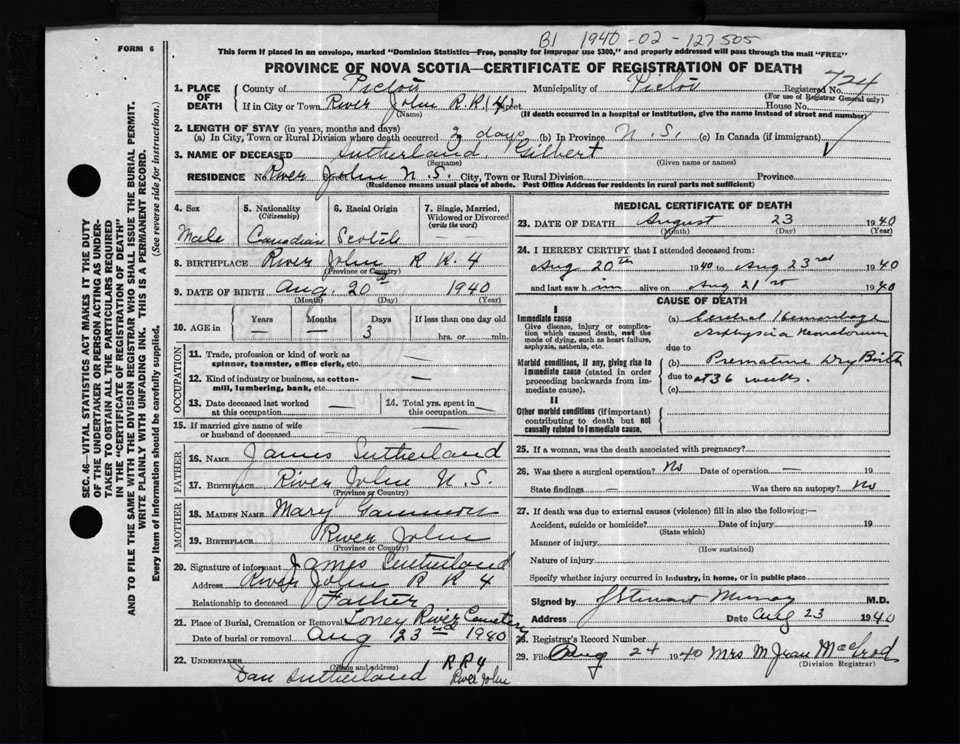 B1 1940-02-127505
FORM 6
This form if placed in an envelope, marked "Dominion Statistics—Free, penalty for improper use $300," and properly addressed will pass through the mail "FREE"
PROVINCE OF NOVA SCOTIA—CERTIFICATE OF REGISTRATION OF DEATH
724
1. PLACE OF DEATH
County of Pictou Municipality of Pictou Registered No.
(For use of Registrar General only)
If in City or Town River John R.R. (4) Street House No.
(Name) (If death occurred in a hospital or institution, give the name instead of street and number)
2. LENGTH OF STAY (in years, months and days)
(a) In City, Town or Rural Division where death occurred 3 days (b) In Province N.S. (c) In Canada (if immigrant)
3. NAME OF DECEASED Sutherland, Gilbert
(Surname) (Given name or names)
RESIDENCE No. River John N.S. City, Town or Rural Division Province
(Residence means usual place of abode. Post Office Address for residents in rural parts not sufficient)
4. Sex Male
5. Nationality (Citizenship) Canadian
6. Racial Origin Scotch
7. Single, Married, Widowed or Divorced (write the word)
8. BIRTHPLACE River John R R. 4
(Province or Country)
9. DATE OF BIRTH Aug. 20th 1940
(Month) (Day) (Year)
10. AGE in Years — Months — Days 3 If less than one day old hrs. or min.
OCCUPATION
11. Trade, profession or kind of work as spinner, teamster, office clerk, etc. —
12. Kind of industry or business, as cotton-mill, lumbering, bank, etc. —
13. Date deceased last worked at this occupation —
14. Total yrs. spent in this occupation —
15. If married give name of wife or husband of deceased —
FATHER
16. NAME James Sutherland
17. BIRTHPLACE River John N.S.
(Province or Country)
MOTHER
18. MAIDEN NAME Mary
19. BIRTHPLACE River John
(Province or Country)
20. Signature of informant James Sutherland
Address River John R R 4
Relationship to deceased Father
21. Place of Burial, Cremation or Removal River Cemetery
Date of burial or removal Aug 23rd 1940
22. UNDERTAKER Dan Sutherland R R 4 River John
(Name and address)
MEDICAL CERTIFICATE OF DEATH
23. DATE OF DEATH August 23 1940
(Month) (Day) (Year)
24. I HEREBY CERTIFY that I attended deceased from:
Aug 20th 1940 to Aug 23rd 1940
and last saw him alive on Aug 21st 1940
CAUSE OF DEATH
I
Immediate cause
Give disease, injury or complication which caused death, not the mode of dying, such as heart failure, asphyxia, asthenia, etc.
(a) Cerebral Hemorrhage
Asphyxia Neonatorum
due to
Morbid conditions, if any, giving rise to immediate cause (stated in order proceeding backwards from immediate cause).
(b) Premature Dry Birth
due to at 36 weeks.
(c)
II
Other morbid conditions (if important) contributing to death but not causally related to immediate cause.
25. If a woman, was the death associated with pregnancy?
26. Was there a surgical operation? No Date of operation — 19
State findings — Was there an autopsy? No
27. If death was due to external causes (violence) fill in also the following:—
Accident, suicide or homicide? Date of injury 19
(State which)
Manner of injury
(How sustained)
Nature of injury
Specify whether injury occurred in industry, in home, or in public place
Signed by J Stewart Murray M.D.
Address Date Aug 23 1940
28. Registrar's Record Number
29. Filed Aug 24 1940 Mrs M Jean MacLeod
(Division Registrar)
SEC. 46—VITAL STATISTICS ACT MAKES IT THE DUTY
OF THE UNDERTAKER OR PERSON ACTING AS UNDER-
TAKER TO OBTAIN ALL THE PARTICULARS REQUIRED
IN THE "CERTIFICATE OF REGISTRATION OF DEATH"
AND TO FILE THE SAME WITH THE DIVISION REGISTRAR WHO SHALL ISSUE THE BURIAL PERMIT.
WRITE PLAINLY WITH UNFADING INK. THIS IS A PERMANENT RECORD.
Every item of information should be carefully supplied. (See reverse side for instructions.)